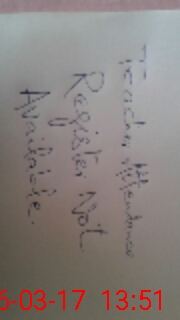 Teacher Attendance
Register Not
Available.
6-03-17 13:51